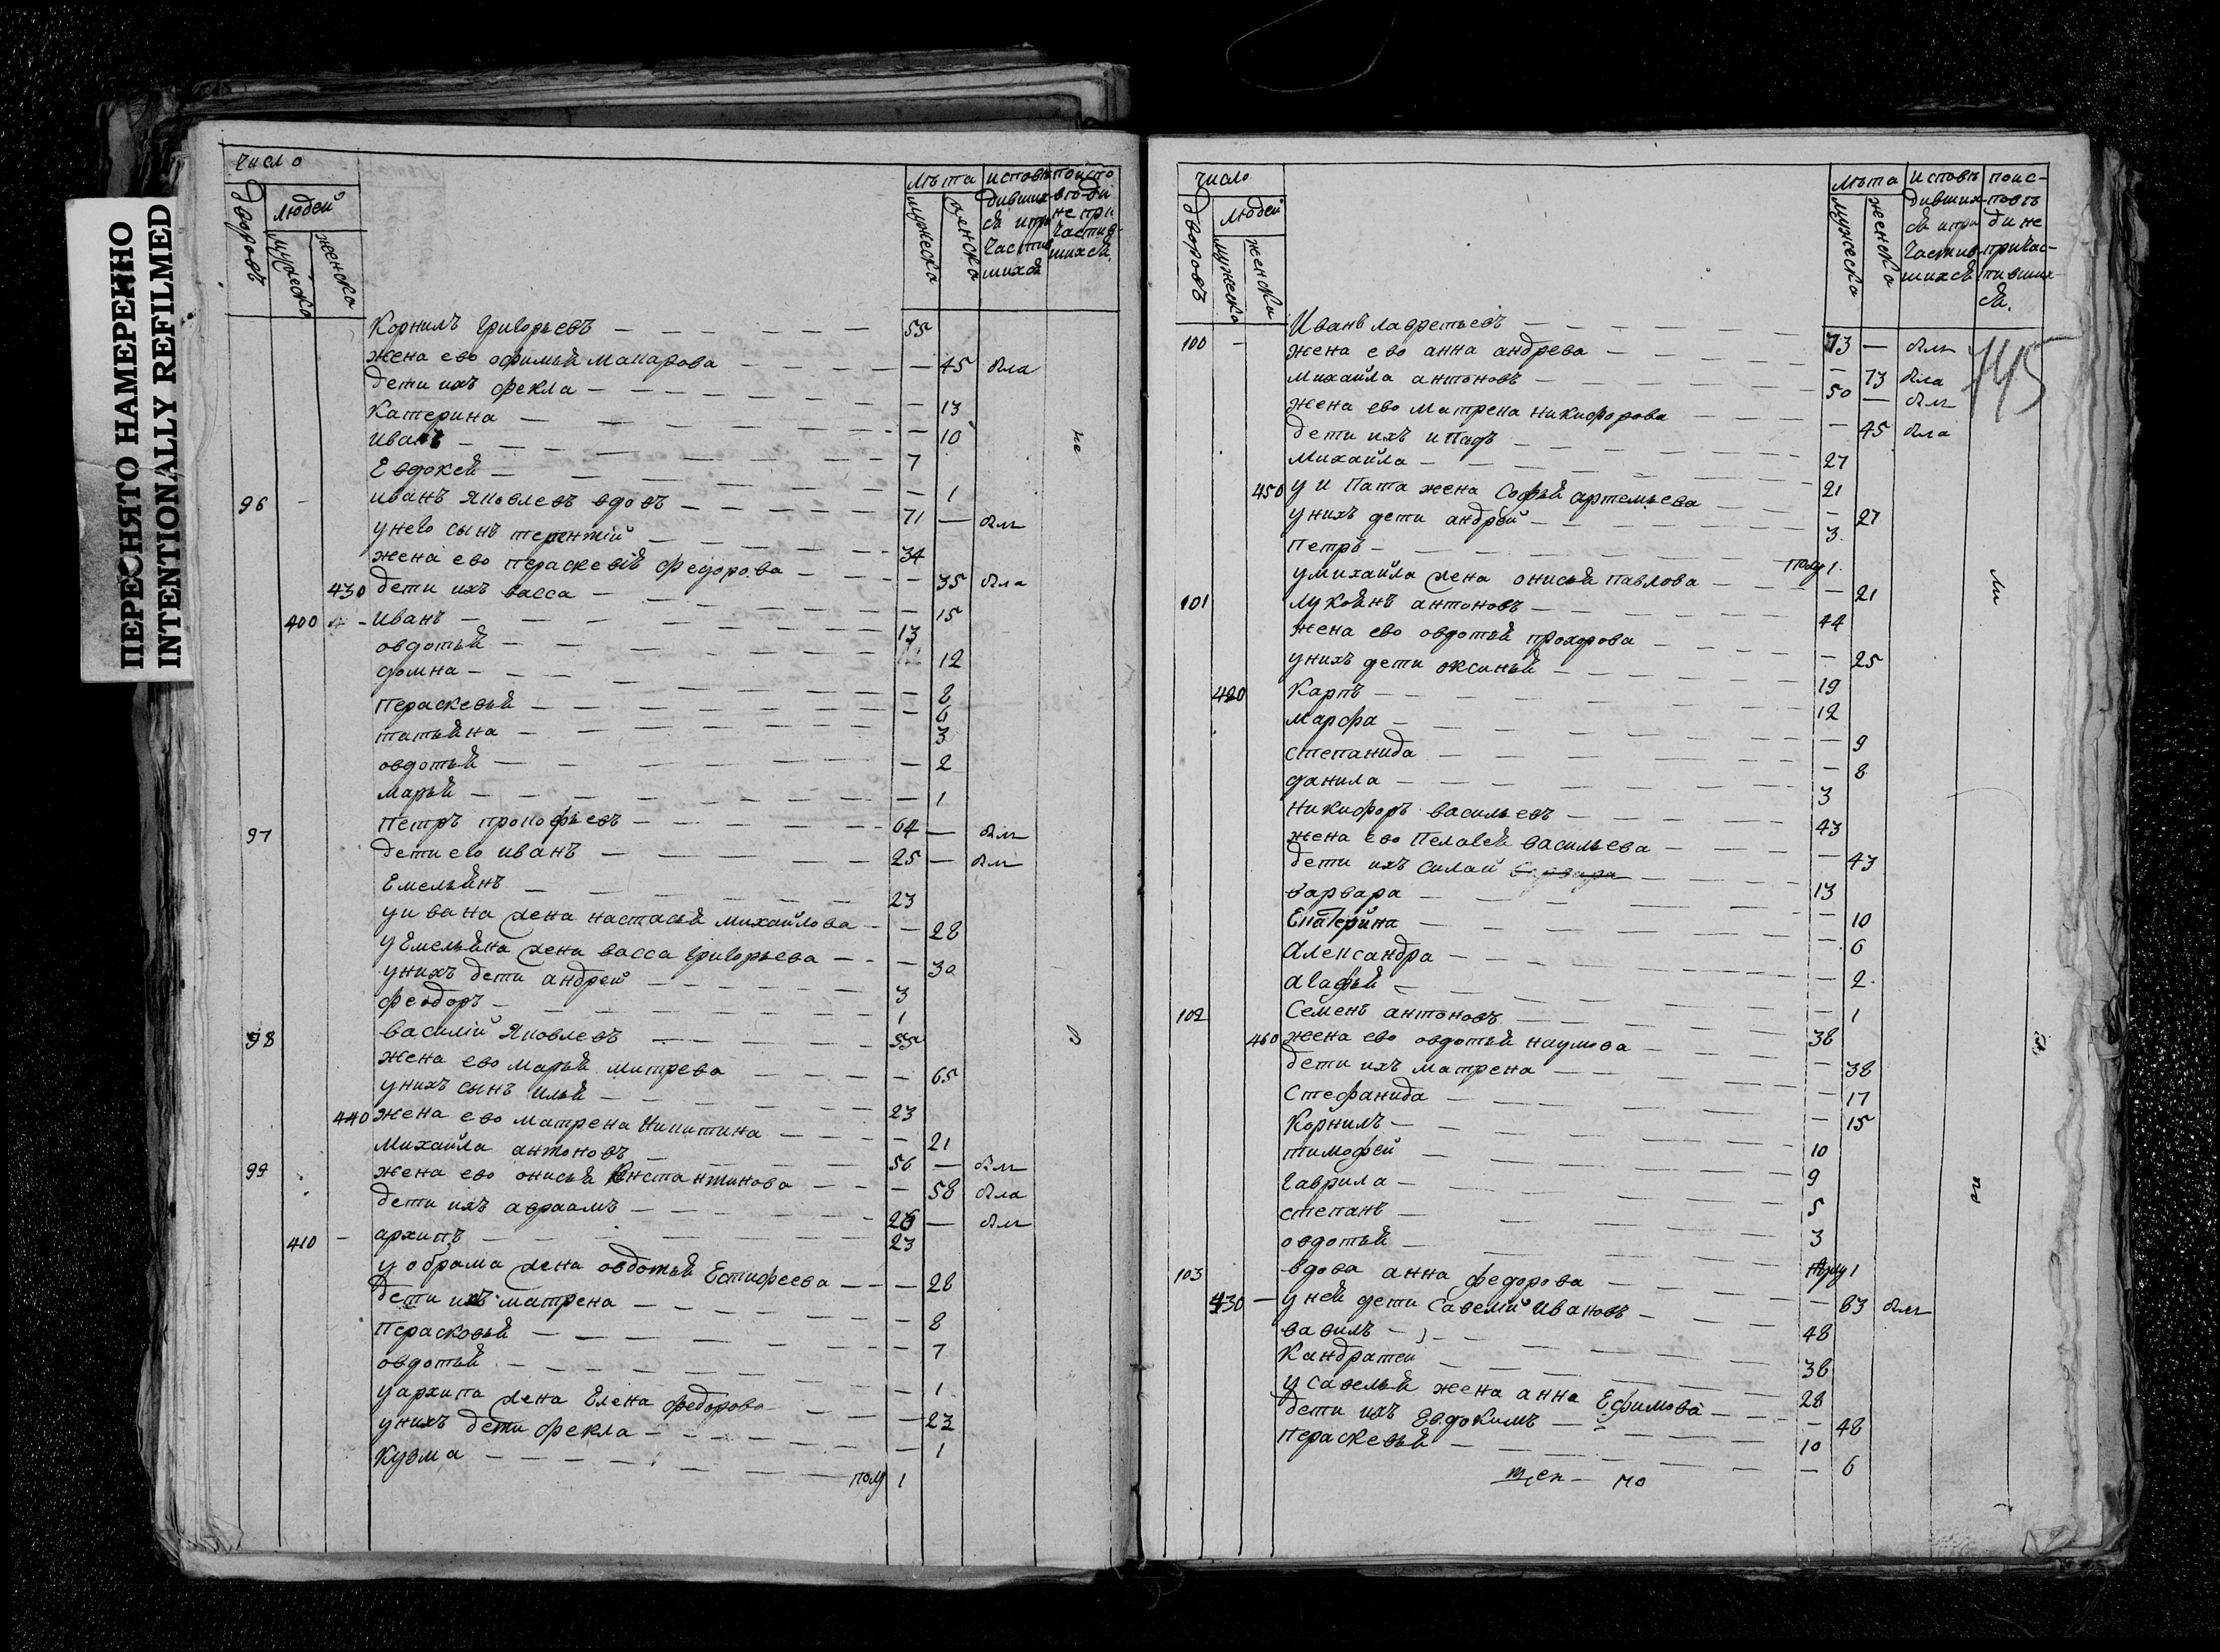 ПЕРЕСНЯТО НАМЕРЕННО
INTENTIONALLY REFILMED
Число
дворовъ
людей
мужеска
женска
лѣта
мужеска
женска
исповѣ
дивших
сѧ и при
частив
шихсѧ
поиспо
вѣди
не при
частив-
шихсѧ.
Корнилъ григорьевъ — 55
жена ево офимьѧ макарова — 45 был
дети ихъ фекла — 13
Катерина — 10
иванъ — 7
Евдокеѧ — 1
96 иванъ Яковлевъ вдовъ — 71 — был
у него сынъ терентий — 34
жена ево пераскевиѧ федорова — 35 была
430 дети ихъ васса — 15
400 иванъ — 13
овдотьѧ — 12
домна — 8
пераскевьѧ — 6
татьѧна — 3
овдотьѧ — 2
марьѧ — 1
97 петръ прокофьевъ — 64 — был
дети его иванъ — 25 — был
Емельѧнъ — 23
у ивана жена настасьѧ михайлова — 28
у Емельѧна жена васса григорьева — 30
у нихъ дети андрей — 3
феодоръ — 1
98 василий Яковлевъ — 55
жена ево марьѧ митрева — 65
у нихъ сынъ ильѧ — 23
440 жена ево матрена никитина — 21
99 михайла антоновъ — 56 — был
жена ево онисьѧ Константинова — 58 была
дети ихъ авраамъ — 26 — был
410 — архипъ — 23
у обрама жена овдотьѧ Естифеева — 28
дети ихъ матрена — 8
Перасковьѧ — 7
овдотьѧ — 1
у архипа жена Елена федорова — 23
у нихъ дети фекла — 1
Кузма — полу 1
не
Число
дворовъ
людей
мужеска
женска
лѣта
мужеска
женска
исповѣ
дивших
сѧ и при
частив-
шихсѧ
поис-
повѣ
ди не
причас-
тивших
сѧ.
145
100 — Иванъ лаврентьевъ — 73 — был
жена ево анна андрева — 73 была
михайла антоновъ — 50 — был
жена ево матрена никифорова — 45 была
дети ихъ ипатъ — 27
михайла — 21
450 у ипата жена Софьѧ артемьева — 27
у нихъ дети андрей — 3
петръ — полу 1
у михайла жена онисьѧ павлова — 21
101 лукоѧнъ антоновъ — 44
жена ево овдотьѧ прохорова — 25
у нихъ дети оксиньѧ — 19
420 Карпъ — 12
марфа — 9
степанида — 8
данила — 3
никифоръ васильевъ — 43
жена ево Пелагеѧ васильева — 43
дети ихъ силай варвара — 13
варвара — 10
Екатерина — 6
Александра — 2
агафьѧ — 1
102 Семенъ антоновъ — 38
460 жена ево овдотьѧ наумова — 38
дети ихъ матрена — 17
Стефанида — 15
Корнилъ — 10
тимофей — 9
гаврила — 5
степанъ — 3
овдотьѧ — полу 1
103 вдова анна федорова — 63 был
430 — у ней дети Савелий Ивановъ — 48
вавилъ — 38
Кандратей — 28
у савельѧ жена анна Ефимова — 48
дети ихъ Евдокимъ — 10
пераскевьѧ — 6